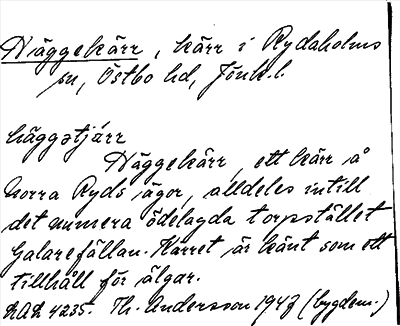 Häggekärr, kärr i Rydaholms
sn, Östbo hd, Jönk.l.
häggətjárr
Häggekärr, ett kärr å
Norra Ryds ägor, alldeles intill
det numera ödelagda torpstället
Galarefällan. Kärret är känt som ett
tillhåll för älgar.
4235. Th. Andersson 1947 (bygdem.)